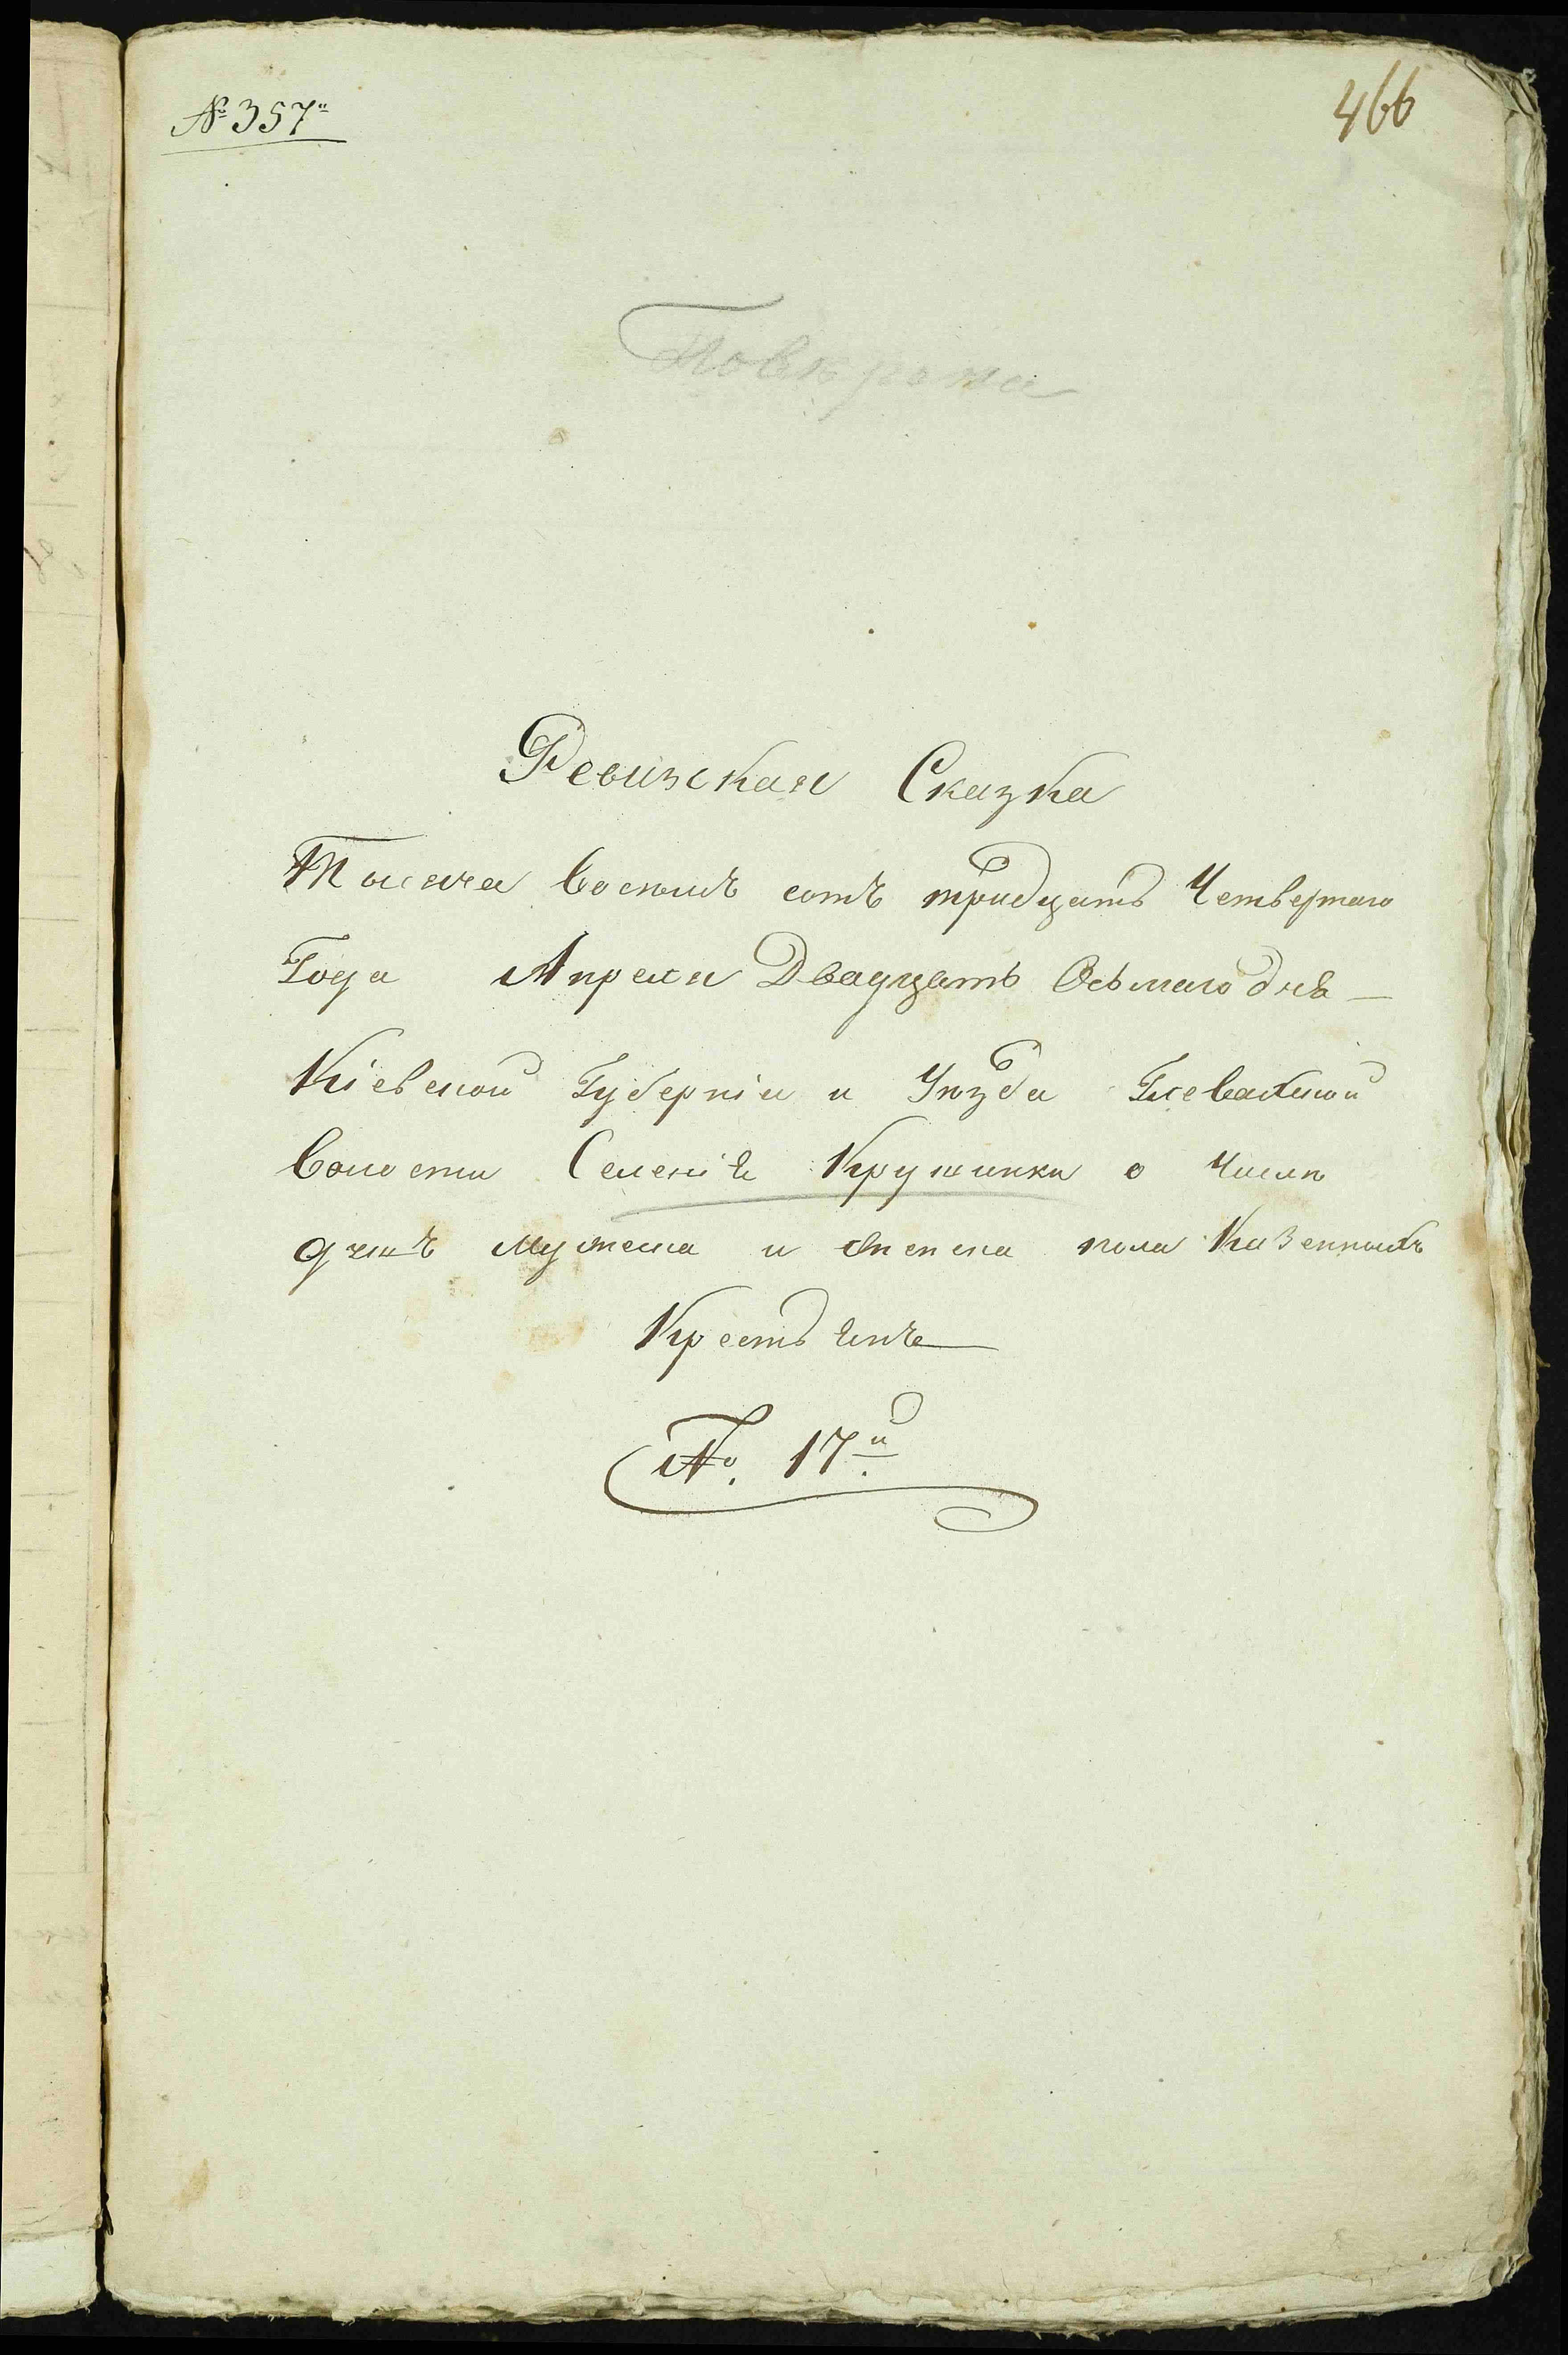 № 357й
466
Повѣрена
Ревизская Сказка
Тысяча восемь сотъ тридцать Четвертаго
Года Апреля Двадцать Осьмаго дня
Кіевской Губерніи и Уѣзда Глевахской
волости Селенія Крушинки о числѣ
душъ мужеска и женска пола Казенныхъ
Крестьянъ
№. 17й